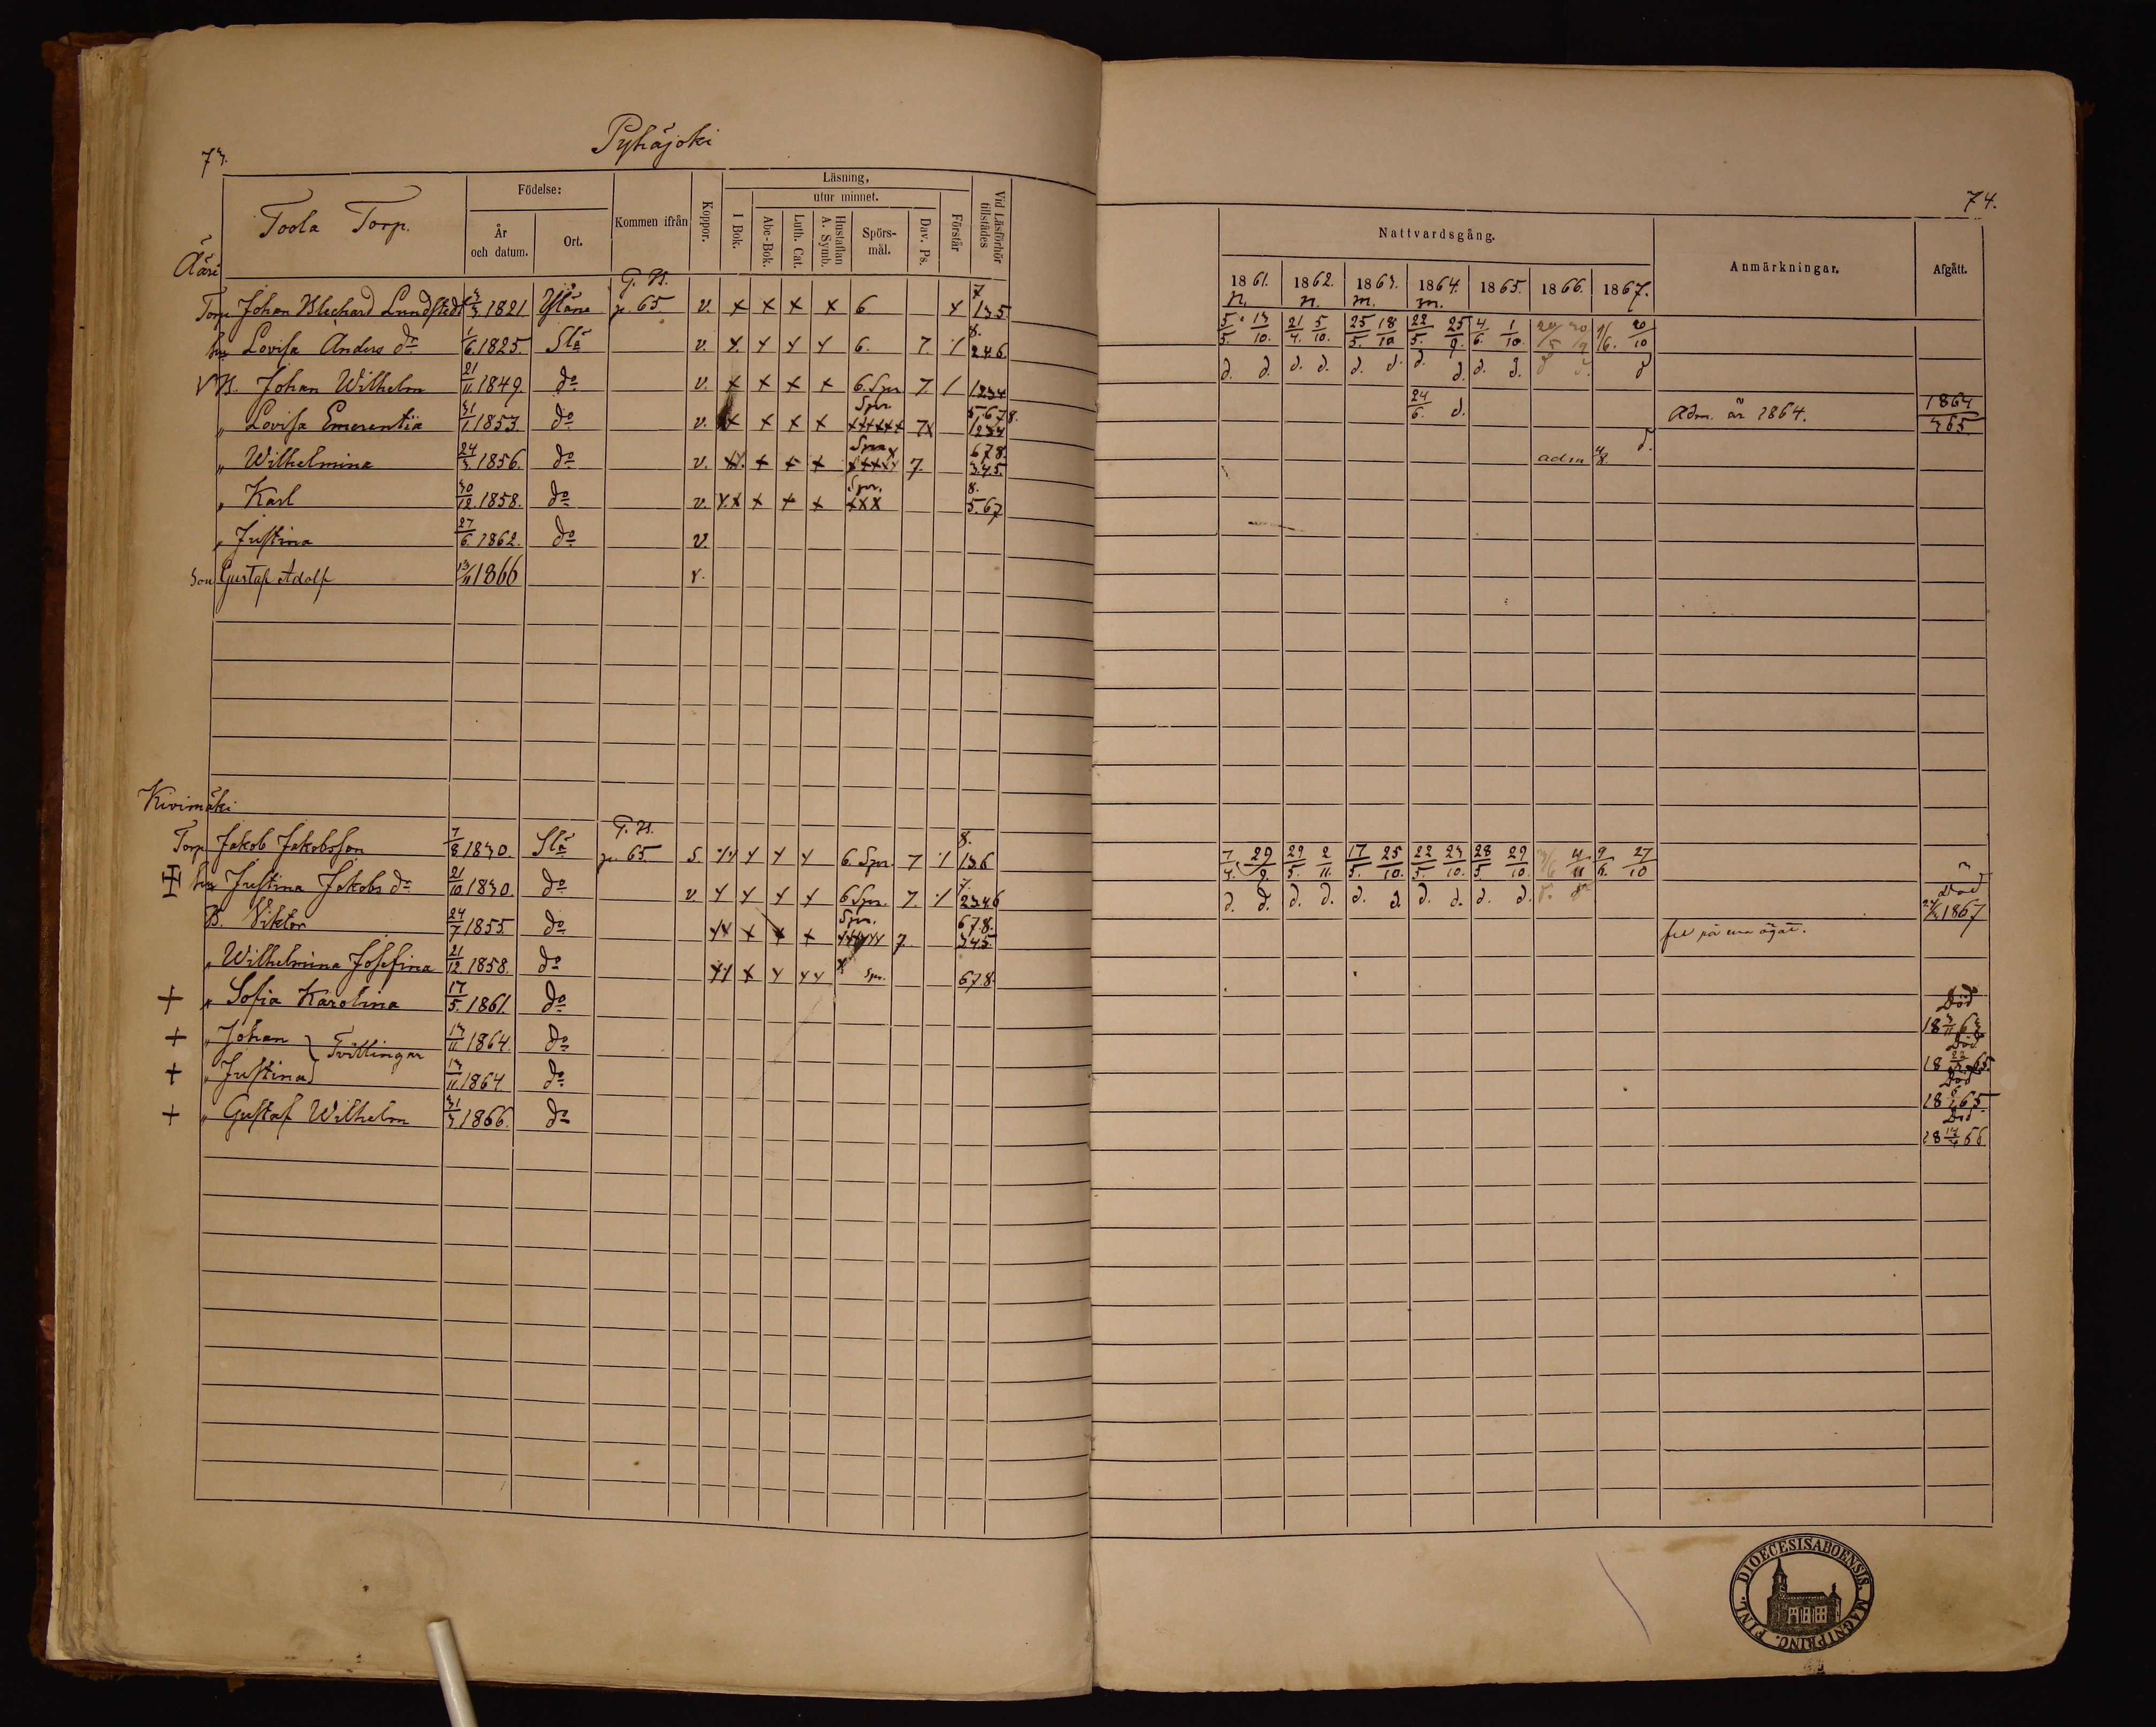 73.
Pyhäjoki
Toola Torp.
Födelse:
År och datum.
Ort.
Kommen ifrån
Koppor.
Läsning.
utur minnet.
I Bok.
Abc-Bok.
Luth. Cat.
Hustaflan A. Symb.
Spörs-mål.
Dav. Ps.
Förstår
Vid Läsförhör tillstädes
Ääri
G. B.
Torp. Johan Blechard Lundstedt 3/3 1821 Yläne p. 65. v. x x x x 6 x 7 135
hu Lovisa Anders dr 1/6 1825. Slä v. x x x x 6. 7. 8. 246
B. Johan Wilhelm 21/11 1849. do v. x x x x 6. Spr 7. 1234
" Lovisa Emerentia 31/1 1853. do v. x x x x Spr. xxxxx 7x 5.678. 1234
" Wilhelmina 24/3 1856. do v. xx x x x Spr. xxxx 7. 678. 345.
" Karl 30/12 1858. do v. xx x x x Spr. xxx 8. 567
" Justina 27/6 1862. do v.
son Gustaf Adolf 13/11 1866 v.
Kivimäki
G. B.
Torp. Jakob Jakobsson 7/8 1830. Slä p. 65. S. x x x x 6. Spr. 7 8. 136
hu Justina Jakobs dr 21/10 1830. do v. x x x x 6 Spr. 7. 7. 2346
B. Viktor 24/7 1855. do xx x x x Spr. 7. 678. 345.
" Wilhelmina Josefina 21/12 1858. do xx x x xx Spr. 678.
+ " Sofia Karolina 17/5 1861. do
+ " Johan } Tvillingar 13/11 1864. do
+ " Justina 13/11 1864. do
+ " Gustaf Wilhelm 31/3 1866. do
74.
Nattvardsgång.
Anmärkningar.
Afgått.
1861. 1862. 1863. 1864. 1865. 1866. 1867.
n. n. m. m.
5/5 13/10. 21/4. 5/10. 25/5. 18/10 22/5. 25/9. 4/6. 1/10. 20/10
d. d. d. d. d. d. d. d. d. d. d
24/6. d. Adm. år 1864. 1864 365
adm d.
7/4. 29/9. 29/5. 2/11. 17/5. 25/10. 22/5. 23/10. 28/5 29/10. 9/6. 27/10
d. d. d. d. d. d. d. d. d. d. Död 1867
fel på ena ögat.
Död 18 3/11 63
Död 18 65.
Död 18 65.
Död 18 66
FINL. DIOECESIS ABOENSIS. MAGNI PRINC.